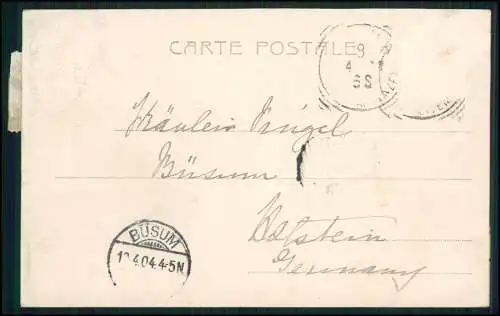 CARTE POSTALE
9
4
Fräulein Nügel
Büsum
Holstein
Germany
BÜSUM
4.04.4-5N